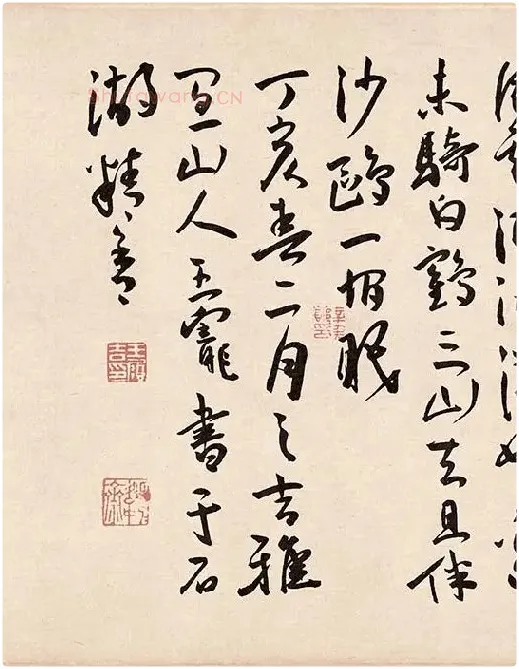 未騎白鶴三山去且伴
沙鷗一眠
丁亥春二月之吉雅
宜山人王寵書于石
湖精舍
王履吉印